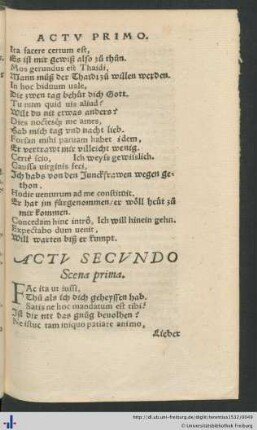 ACTV PRIMO.
Ita facere certum est,
Es ist mir gewiß also zů thůn.
Mos gerundus est Thaidi,
Mann můß der Thaidi zů willen werden.
In hoc biduum uale,
Die zwen tag behůt dich Gott.
Tu num quid uis aliud?
Wilt du nit etwas anders?
Dies noctesq́; me ames,
Hab mich tag vnd nacht lieb.
Forsan mihi paruam habet fidem,
Er vertrawt mir villeicht wenig.
Certè scio, Ich weyß gewißlich.
Caussa uirginis feci,
Ich habs von den Junckfrawen wegen ge-
thon.
Hodie uenturum ad me constituit,
Er hat im fürgenommen / er wöll heüt zů
mir kommen.
Concedam hinc intrò, Ich will hinein gehn.
Expectabo dum uenit,
Will warten biß er kumpt.
ACTV SECVNDO
Scena prima.
FAc ita ut iussi,
Thů als ich dich geheyssen hab.
Satin ne hoc mandatum est tibi?
Ist dir nit das gnůg beuolhen?
Ne istuc tam iniquo patiare animo,
Lieber
http://dl.ub.uni-freiburg.de/diglit/terentius1532/0049
© Universitätsbibliothek Freiburg